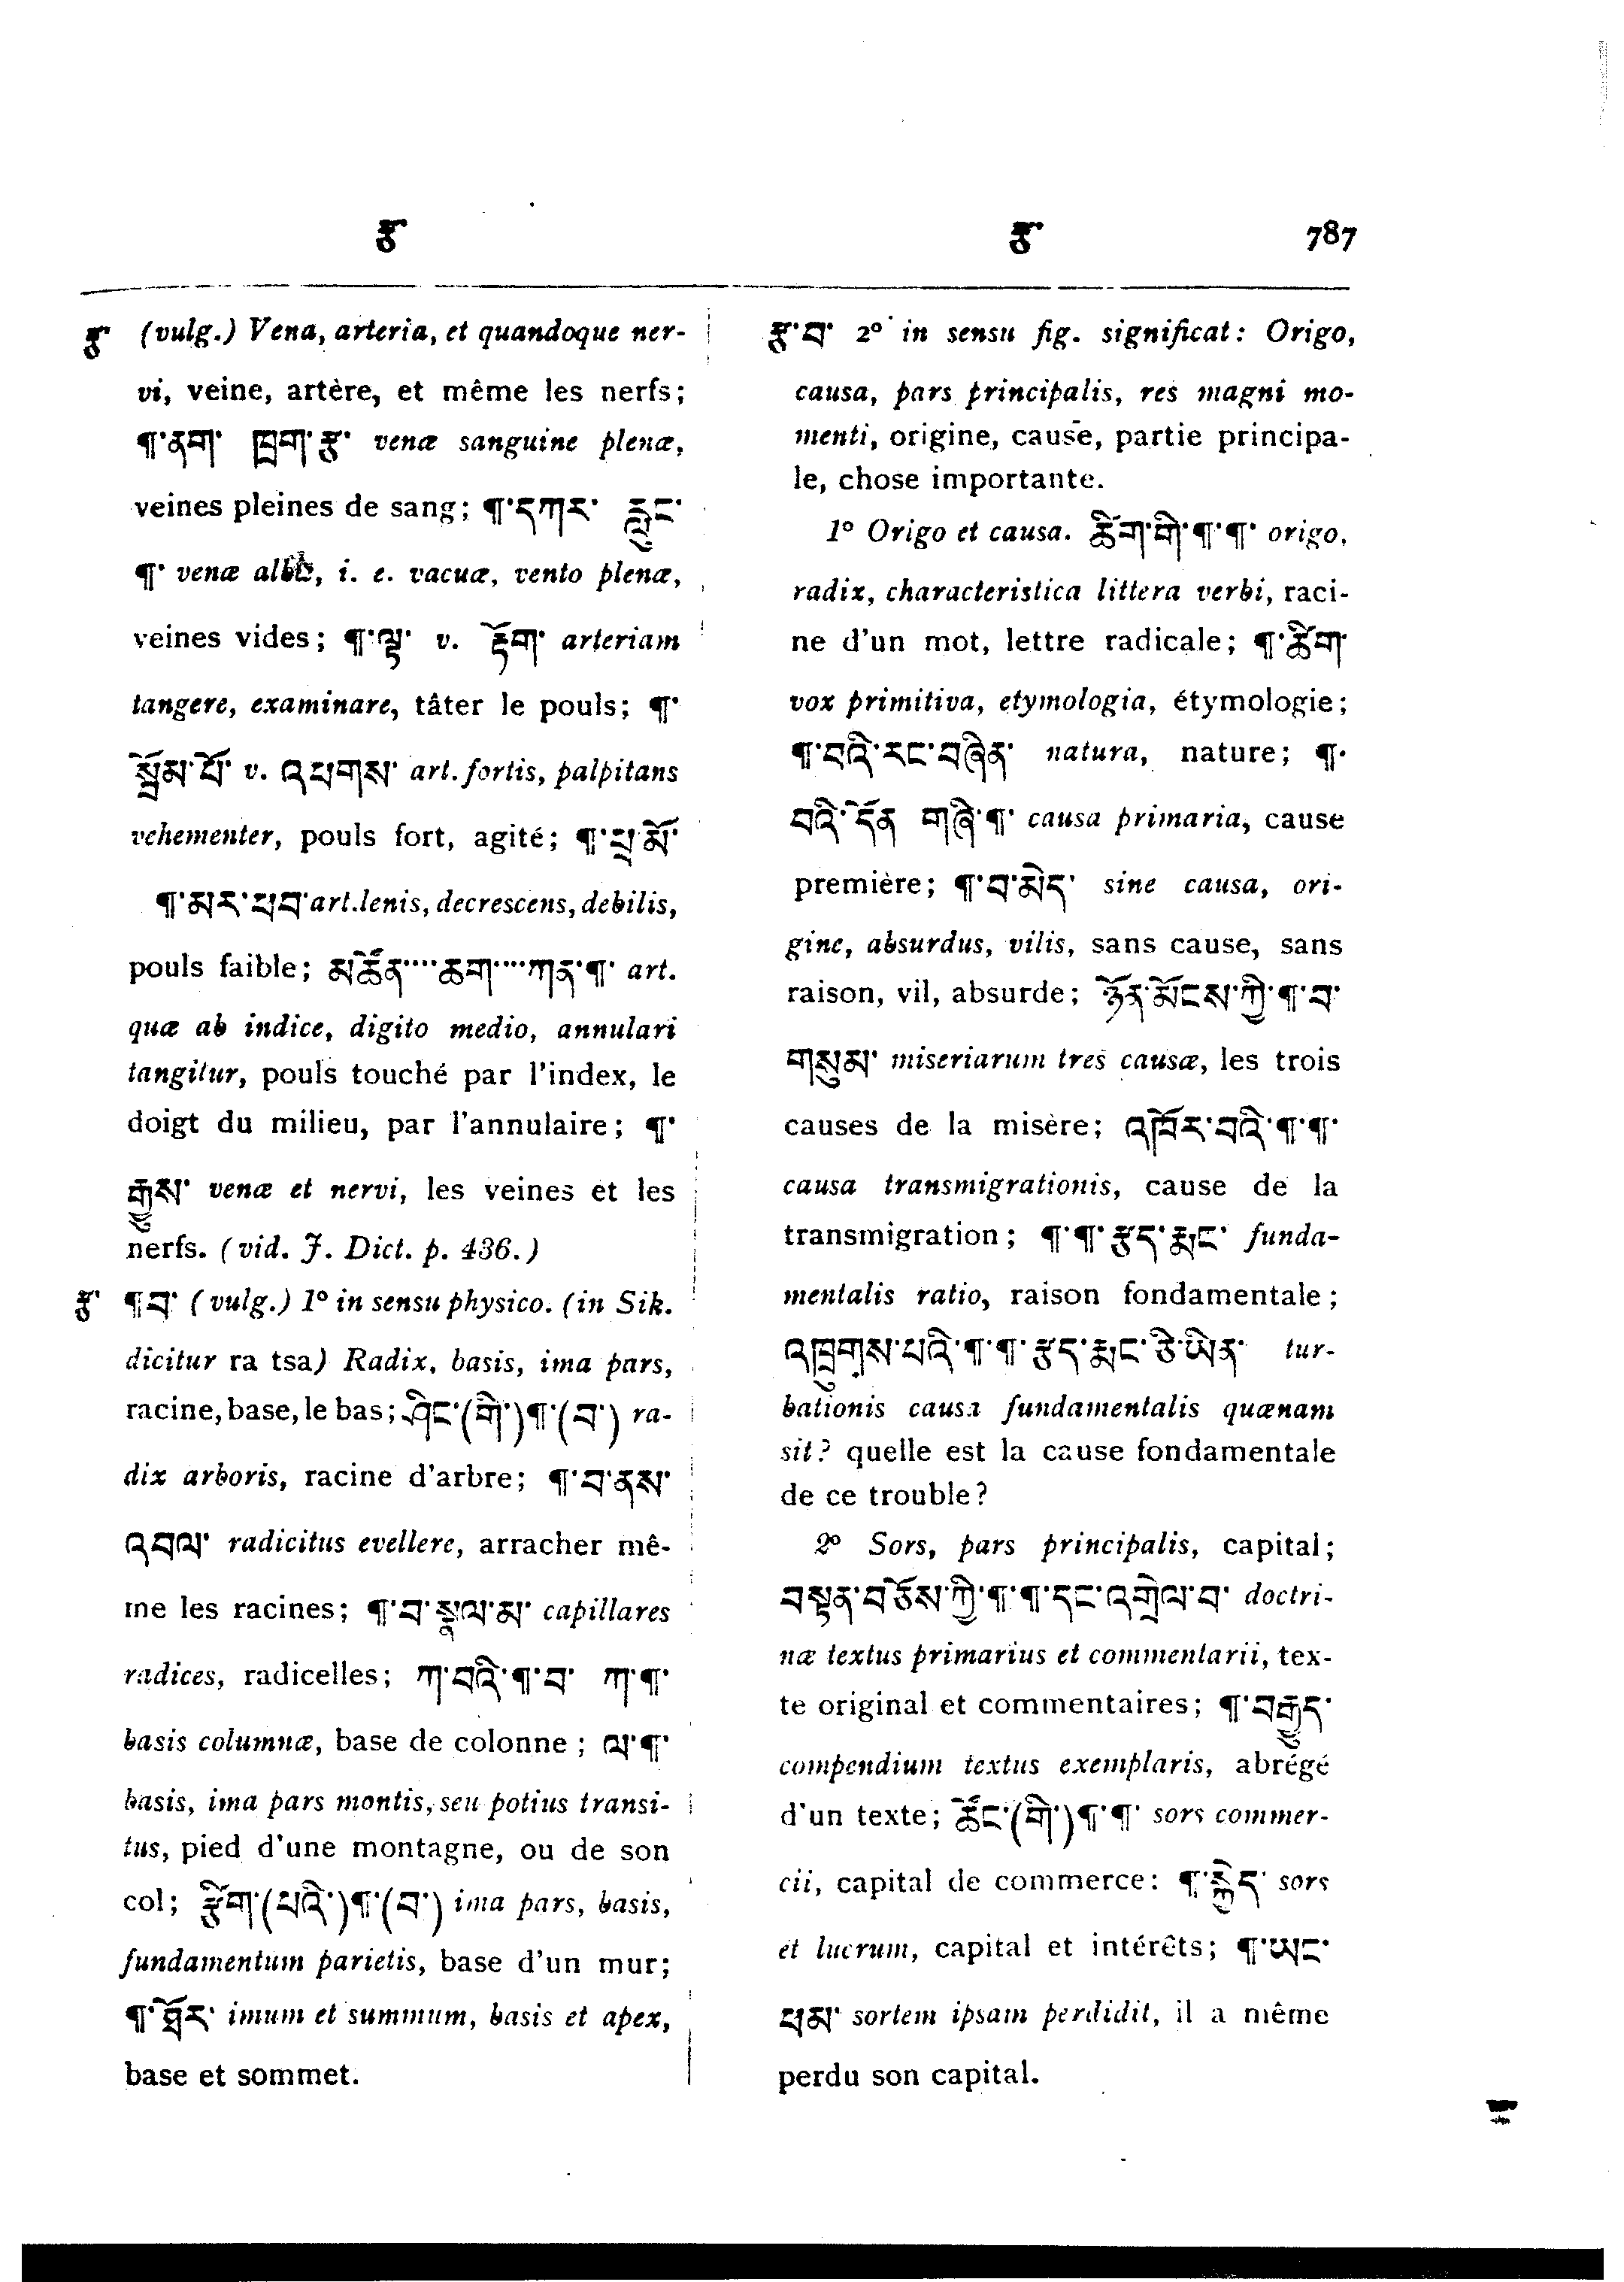 རྩ་ རྩ་ 787
རྩ་ (vulg.) Vena, arteria, et quandoque ner-
vi, veine, artère, et même les nerfs;
¶་ནག་ ཁྲག་རྩ་ venæ sanguine plenæ,
veines pleines de sang; ¶་དཀར་ རླུང་
¶་ venæ albæ, i. e. vacuæ, vento plenæ,
veines vides; ¶་ལྟ་ v. རྟོག་ arteriam
tangere, examinare, tâter le pouls; ¶་
སྦོམ་པོ་ v. འཕགས་ art. fortis, palpitans
vehementer, pouls fort, agité; ¶་ཕྲ་མོ་
¶་མར་ཕབ་ art. lenis, decrescens, debilis,
pouls faible; མཚོན་... ཆག་... ཀན་¶་ art.
quæ ab indice, digito medio, annulari
tangitur, pouls touché par l'index, le
doigt du milieu, par l'annulaire; ¶་
རྒྱུས་ venæ et nervi, les veines et les
nerfs. (vid. J. Dict. p. 436.)
རྩ་ ¶་བ་ (vulg.) 1º in sensu physico. (in Sik.
dicitur ra tsa) Radix, basis, ima pars,
racine, base, le bas; ཤིང་(གི་)¶་(བ་) ra-
dix arboris, racine d'arbre; ¶་བ་ནས་
འབལ་ radicitus evellere, arracher mê-
me les racines; ¶་བ་སྣལ་མ་ capillares
radices, radicelles; ཀ་བའི་¶་བ་ ཀ་¶་
basis columnæ, base de colonne; ལ་¶་
basis, ima pars montis, seu potius transi-
tus, pied d'une montagne, ou de son
col; རྩིག་(པའི་)¶་(བ་) ima pars, basis,
fundamentum parietis, base d'un mur;
¶་ཐོར་ imum et summum, basis et apex,
base et sommet.
རྩ་བ་ 2º in sensu fig. significat: Origo,
causa, pars principalis, res magni mo-
menti, origine, cause, partie principa-
le, chose importante.
1º Origo et causa. ཚིག་གི་¶་¶་ origo,
radix, characteristica littera verbi, raci-
ne d'un mot, lettre radicale; ¶་ཚིག་
vox primitiva, etymologia, étymologie;
¶་བའི་རང་བཞིན་ natura, nature; ¶་
བའི་དོན གཞི་¶་ causa primaria, cause
première; ¶་བ་མེད་ sine causa, ori-
gine, absurdus, vilis, sans cause, sans
raison, vil, absurde; ཉོན་མོངས་ཀྱི་¶་བ་
གསུམ་ miseriarum tres causæ, les trois
causes de la misère; འཁོར་བའི་¶་¶་
causa transmigrationis, cause de la
transmigration; ¶་¶་རྩད་རྨང་ funda-
mentalis ratio, raison fondamentale;
འཁྲུགས་པའི་¶་¶་རྩད་རྨང་ཅི་ཡིན་ tur-
bationis causa fundamentalis quænam
sit? quelle est la cause fondamentale
de ce trouble?
2º Sors, pars principalis, capital;
བསྟན་བཅོས་ཀྱི་¶་¶་དང་འགྲེལ་བ་ doctri-
næ textus primarius et commentarii, tex-
te original et commentaires; ¶་བརྒྱུད་
compendium textus exemplaris, abrégé
d'un texte; ཚོང་(གི་)¶་¶་ sors commer-
cii, capital de commerce: ¶་སྐྱེད་ sors
et lucrum, capital et intérêts; ¶་ཡང་
ཕམ་ sortem ipsam perdidit, il a même
perdu son capital.